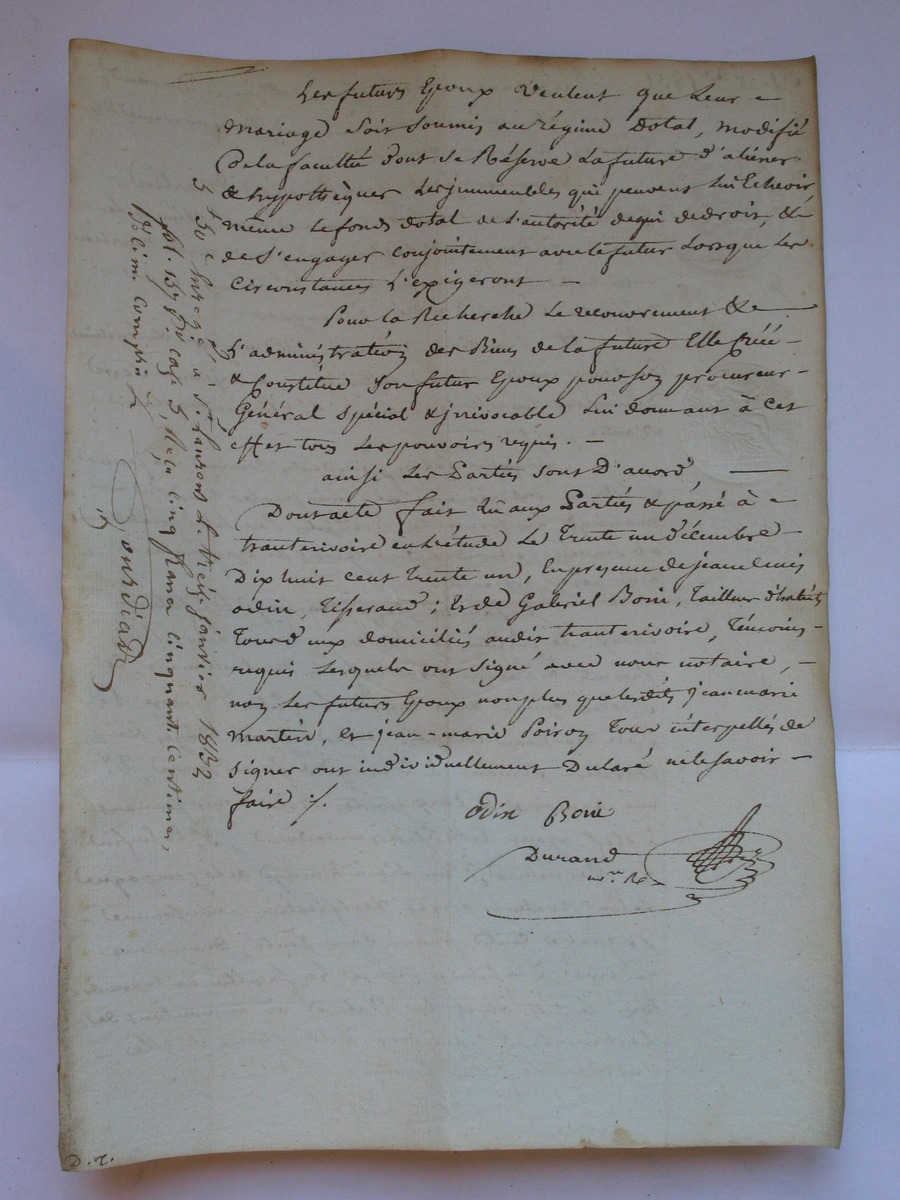 Les futurs Epoux veulent que leur
mariage soit soumis au régime Dotal, modifié
De la faculté dont se Réserve La future d'aliéner
& hypothèquer Les immeubles qui peuvent lui Echeoir,
même Le fonds dotal de l'autorité de qui de droit, &
de s'engager conjointement avec le futur Lorsque Les
circonstances L'exigeront —
Pour La Recherche Le recouvrement &
L'administration des Biens de la future Elle Créé
& Constitue Son futur Epoux pour son procureur
Général spécial & irrévocable Lui donnant à cet
effet tous Les pouvoirs requis. —
ainsi Les Parties sont D'accord —
Dont acte fait Lû aux Parties & passé à
tranterivoire en l'étude Le Trente un décembre
Dix huit cent Trente un, En présence de jean
odin, Tisserand ; Et de Gabriel Boni, Tailleur d'habits
Tous d'eux domiciliés audit tranterivoire, Témoins
requis Lesquels ont signé avec nous notaire, —
non Les futurs Epoux non plus que lesdits jean marie
martin, et jean-marie Poiron Tous interpellés de
signer ont individuellement Déclaré ne le savoir —
faire ./.
Odin Boni
Durand
nre
Enregé à St Laurent Le treize janvier 1832
fol 157 cases 5 Reçu cinq francs cinquante centimes,
Décime compris
D. r.